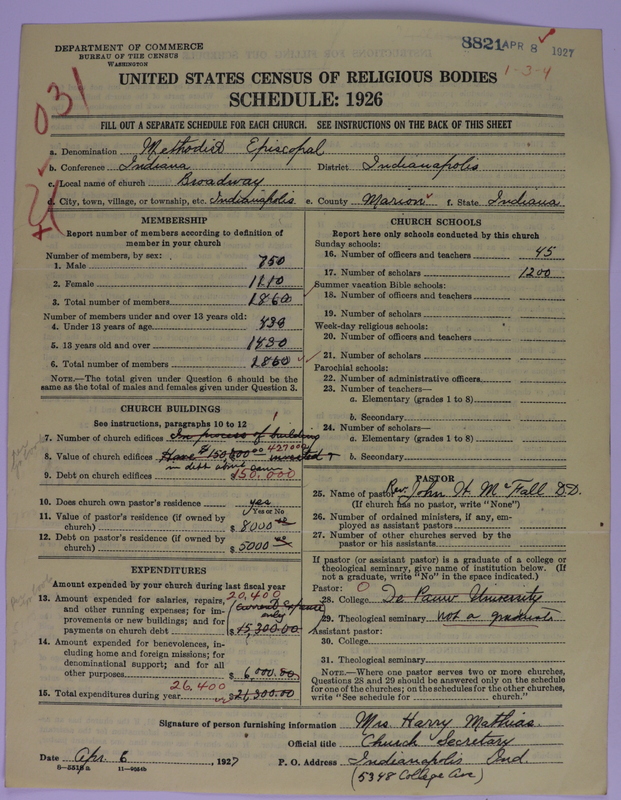 DEPARTMENT OF COMMERCE
BUREAU OF THE CENSUS
WASHINGTON
8821 APR 8 1927
1-3-4
031
UNITED STATES CENSUS OF RELIGIOUS BODIES
SCHEDULE: 1926
FILL OUT A SEPARATE SCHEDULE FOR EACH CHURCH. SEE INSTRUCTIONS ON THE BACK OF THIS SHEET
a. Denomination Methodist Episcopal
b. Conference Indiana District Indianapolis
c. Local name of church Broadway
d. City, town, village, or township, etc. Indianapolis e. County Marion f. State Indiana
MEMBERSHIP
Report number of members according to definition of
member in your church
Number of members, by sex:
1. Male 750
2. Female 1110
3. Total number of members 1860
Number of members under and over 13 years old:
4. Under 13 years of age 430
5. 13 years old and over 1430
6. Total number of members 1860
NOTE.—The total given under Question 6 should be the
same as the total of males and females given under Question 3.
CHURCH BUILDINGS
See instructions, paragraphs 10 to 12
7. Number of church edifices In process of building 1
8. Value of church edifices Have $150,800.00 invested 427000
in debt about
9. Debt on church edifices 150,000
10. Does church own pastor's residence yes
Yes or No
11. Value of pastor's residence (if owned by
church) $ 8000.00
12. Debt on pastor's residence (if owned by
church) $ 5000.00
EXPENDITURES
Amount expended by your church during last fiscal year
20,400
13. Amount expended for salaries, repairs, (current expense
and other running expenses; for im- only
provements or new buildings; and for
payments on church debt $ 15,300.00
14. Amount expended for benevolences, in-
cluding home and foreign missions; for
denominational support; and for all
other purposes $ 6,000.00
26,400
15. Total expenditures during year $ 21,300.00
CHURCH SCHOOLS
Report here only schools conducted by this church
Sunday schools:
16. Number of officers and teachers 45
17. Number of scholars 1200
Summer vacation Bible schools:
18. Number of officers and teachers
19. Number of scholars
Week-day religious schools:
20. Number of officers and teachers
21. Number of scholars
Parochial schools:
22. Number of administrative officers
23. Number of teachers—
a. Elementary (grades 1 to 8)
b. Secondary
24. Number of scholars—
a. Elementary (grades 1 to 8)
b. Secondary
PASTOR
25. Name of pastor Rev. John H. McFall D.D.
(If church has no pastor, write "None")
26. Number of ordained ministers, if any, em-
ployed as assistant pastors
27. Number of other churches served by the
pastor or his assistants
If pastor (or assistant pastor) is a graduate of a college or
theological seminary, give name of institution below. (If
not a graduate, write "No" in the space indicated.)
Pastor: 0
28. College De Pauw University
29. Theological seminary not a graduate
Assistant pastor:
30. College
31. Theological seminary
NOTE.—Where one pastor serves two or more churches,
Questions 28 and 29 should be answered only on the schedule
for one of the churches; on the schedules for the other churches,
write "See schedule for church."
Signature of person furnishing information Mrs. Harry Mathias
Official title Church Secretary
Date Apr. 6, 1927 P. O. Address Indianapolis Ind.
8—5518a 11—9051b (5348 College Ave)